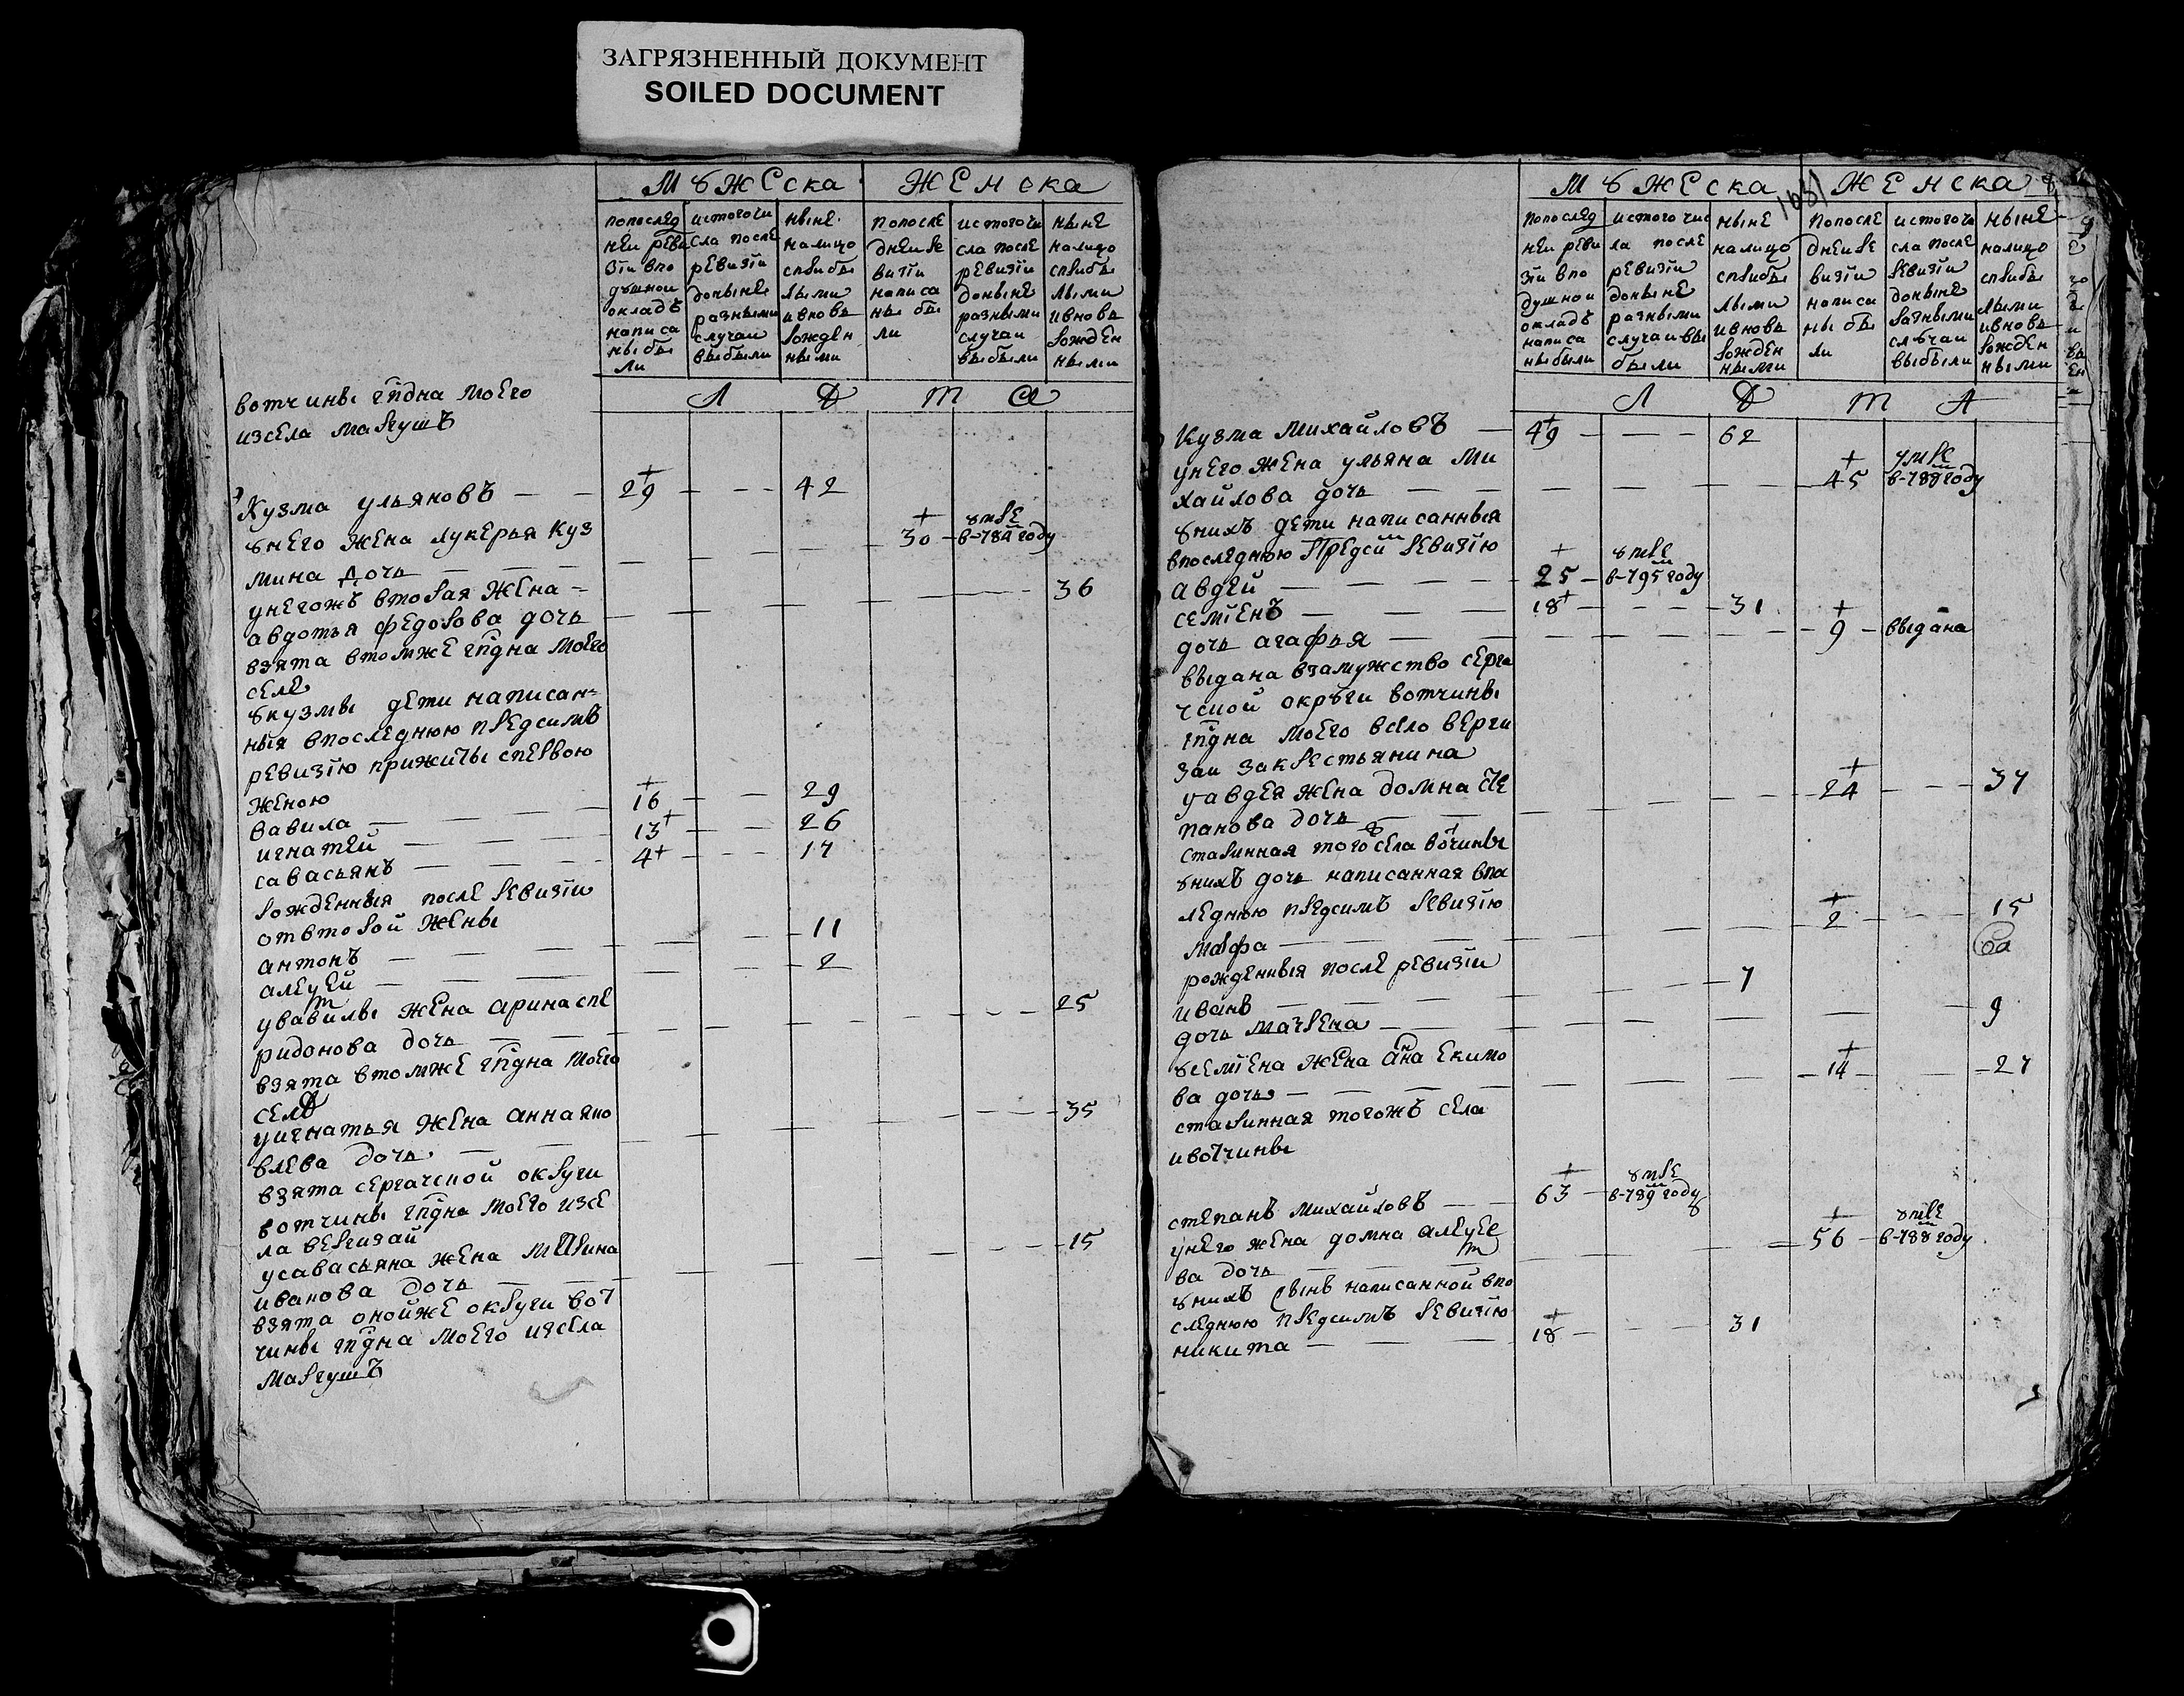 ЗАГРЯЗНЕННЫЙ ДОКУМЕНТ
SOILED DOCUMENT
Мужеска Женска
попослед неи реви зiи впо душнои окладъ написа ны бы ли
истогочи сла после ревизiи доныне разными случаи выбыли
ныне налицо сприбы лыми ивновь рожден ными
попосле днеи ре визiи написа ны бы ли
истогочи сла после ревизiи доныне разными случаи выбыли
ныне налицо сприбы лыми ивновь рожден ными
Л Ѣ т а
вотчины гпдна моего
изсела маргушъ
Кузма ульяновъ — — 29 — — 42
унего жена лукерья куз
мина дочь — 30 — умре в-784 году
унегожъ вторая жена
авдотья федорова дочь — 36
взята втомже гпдна моего
селе
укузмы дети написан-
ныя впоследнюю предсимъ
ревизiю прижиты спервою
женою
вавила — 16 — 29
игнатей — 13 — 26
савасьянъ — 4 — 17
рожденныя после ревизiи
отвторой жены
антонъ — 11
алеѯей — 2
увавилы жена арина спе
ридонова дочь — 25
взята втомже гпдна моего
селѣ
уигнатья жена анна яко
влева дочь — 35
взята сергачской округи
вотчины гпдна моего изсе
ла вергизай
усавасьяна жена матрина
иванова дочь — 15
взята онойже округи вот
чины гпдна моего изсела
маргушъ
1031
Мужеска Женска
попослед неи реви зiи впо душнои окладъ написа ны были
истого чис ла после ревизiи доныне разными случаи вы были
ныне налицо сприбы лыми ивновь рожден ными
попосле днеи ре визiи написа ны бы ли
истогочи сла после ревизiи доныне разными случаи выбыли
ныне налицо сприбы лыми ивновь рожден ными
Л Ѣ т а
Кузма михайловъ — 49 — — 62
унего жена ульяна ми
хайлова дочь — 45 умре в-788 году
унихъ дети написанныя
впоследнюю предсимъ ревизiю
авдей — 25 — умре в-795 году
семiенъ — 18 — 31
дочь агафья — 9 — выдана
выдана взамужство серга
чской округи вотчины
гпдна моего всело верги
заи закрестьянина
уавдея жена домна сте
панова дочь — 24 — 37
старинная того села вотчины
унихъ дочь написанная впо
леднюю предсимъ ревизiю
марфа — 2 — 15
рожденныя после ревизiи
иванъ — 7
дочь матрена — 9
усемiена жена анна екимо
ва дочь — 14 — 27
старинная тогожъ села
ивотчины
степанъ михайловъ — 63 — умре в-789 году
унего жена домна алеѯее
ва дочь — 56 — умре в-788 году
унихъ сынъ написанной впо
следнюю предсимъ ревизiю
никита — 18 — 31